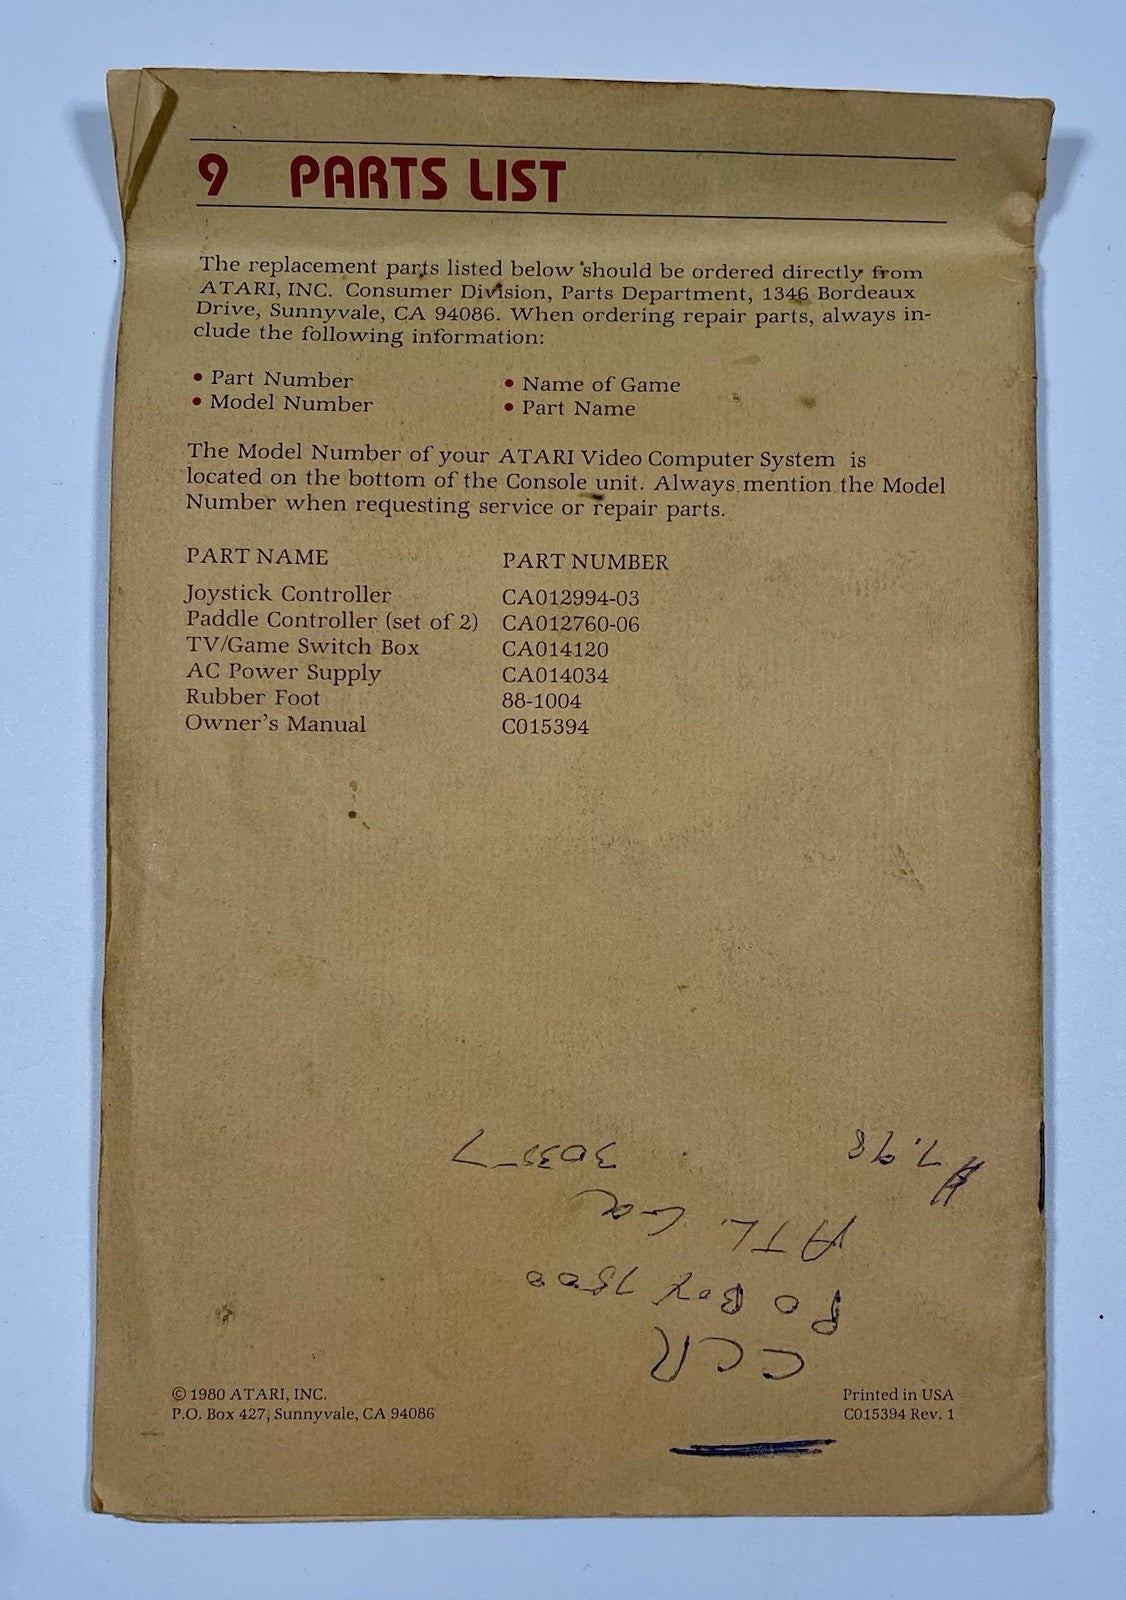 9 PARTS LIST
The replacement parts listed below should be ordered directly from
ATARI, INC. Consumer Division, Parts Department, 1346 Bordeaux
Drive, Sunnyvale, CA 94086. When ordering repair parts, always in-
clude the following information:
• Part Number • Name of Game
• Model Number • Part Name
The Model Number of your ATARI Video Computer System is
located on the bottom of the Console unit. Always mention the Model
Number when requesting service or repair parts.
PART NAME PART NUMBER
Joystick Controller CA012994-03
Paddle Controller (set of 2) CA012760-06
TV/Game Switch Box CA014120
AC Power Supply CA014034
Rubber Foot 88-1004
Owner's Manual C015394
© 1980 ATARI, INC. Printed in USA
P.O. Box 427, Sunnyvale, CA 94086 C015394 Rev. 1
CCR
PO Box 7500
ATL. Ga
$7.98 30357